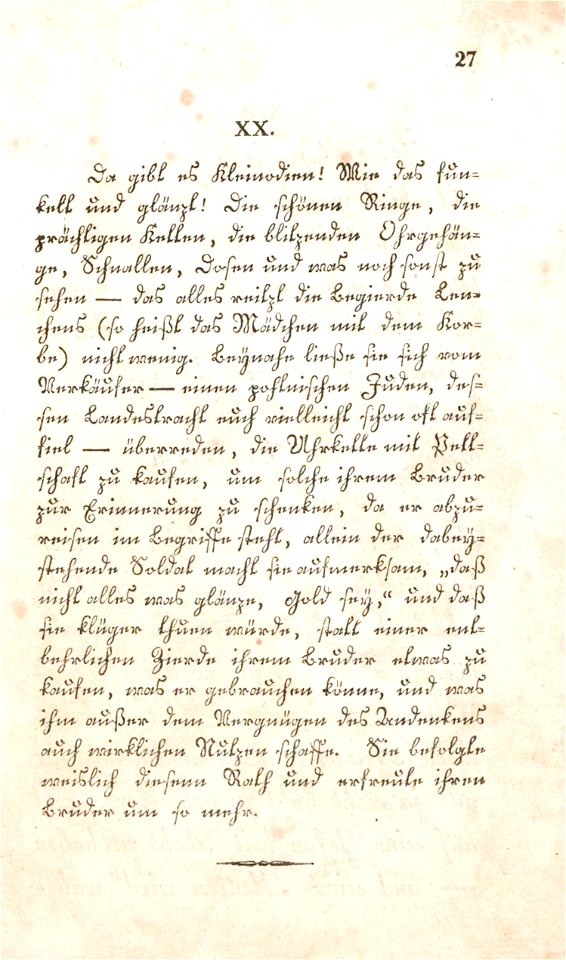 27
XX.
Da gibt es Kleinodien! Wie das fun-
kelt und glänzt! Die schönen Ringe, die
prächtigen Ketten, die blitzenden Ohrgehän-
ge, Schnallen, Dosen und was noch sonst zu
sehen — das alles reitzt die Begierde Len-
chens (so heißt das Mädchen mit dem Kor-
be) nicht wenig. Beynahe ließe sie sich vom
Verkäufer — einen pohlnischen Juden, des-
sen Landestracht euch vielleicht schon oft auf-
fiel — überreden, die Uhrkette mit Pett-
schaft zu kaufen, um solche ihrem Bruder
zur Erinnerung zu schenken, da er abzu-
reisen im Begriffe steht, allein der dabey-
stehende Soldat macht sie aufmerksam, „daß
nicht alles was glänze, Gold sey,“ und daß
sie klüger thuen würde, statt einer ent-
behrlichen Zierde ihrem Bruder etwas zu
kaufen, was er gebrauchen könne, und was
ihm außer dem Vergnügen des Andenkens
auch wirklichen Nutzen schaffe. Sie befolgte
weislich diesenn Rath und erfreute ihren
Bruder um so mehr.